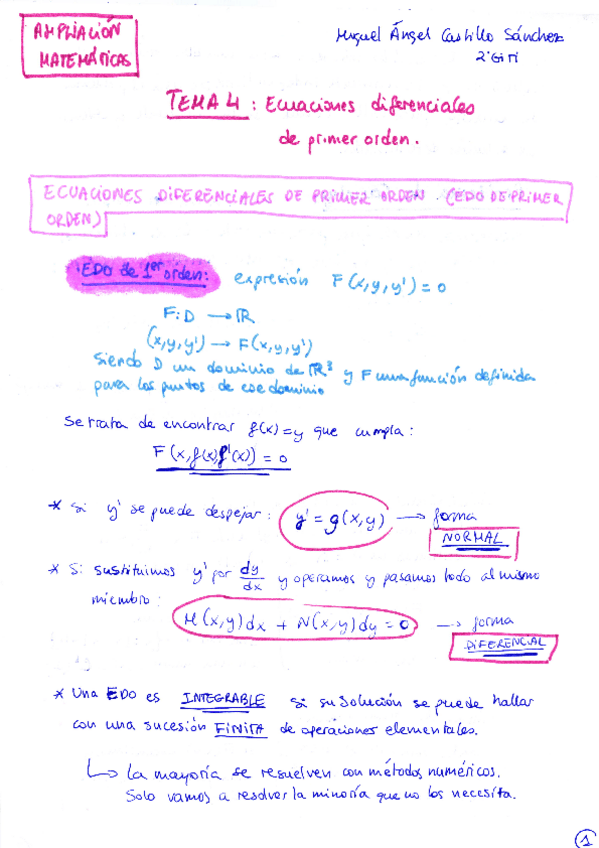 AMPLIACIÓN
MATEMÁTICAS
Miguel Ángel Castillo Sánchez
2º GITI
TEMA 4 : Ecuaciones diferenciales
de primer orden.
ECUACIONES DIFERENCIALES DE PRIMER ORDEN (EDO DE PRIMER
ORDEN)
EDO de 1er orden: expresión F(x,y,y') = 0
F: D → ℝ
(x,y,y') → F(x,y,y')
siendo D un dominio de ℝ³ y F una función definida
para los puntos de ese dominio
Se trata de encontrar f(x)=y que cumpla:
F(x,f(x),f'(x)) = 0
* Si y' se puede despejar: y' = g(x,y) → forma
NORMAL
* Si sustituimos y' por dy/dx y operamos y pasamos todo al mismo
miembro: M(x,y)dx + N(x,y)dy = 0 → forma
DIFERENCIAL
* Una EDO es INTEGRABLE si su solución se puede hallar
con una sucesión FINITA de operaciones elementales.
↳ La mayoría se resuelven con métodos numéricos.
Solo vamos a resolver la minoría que no los necesita.
1